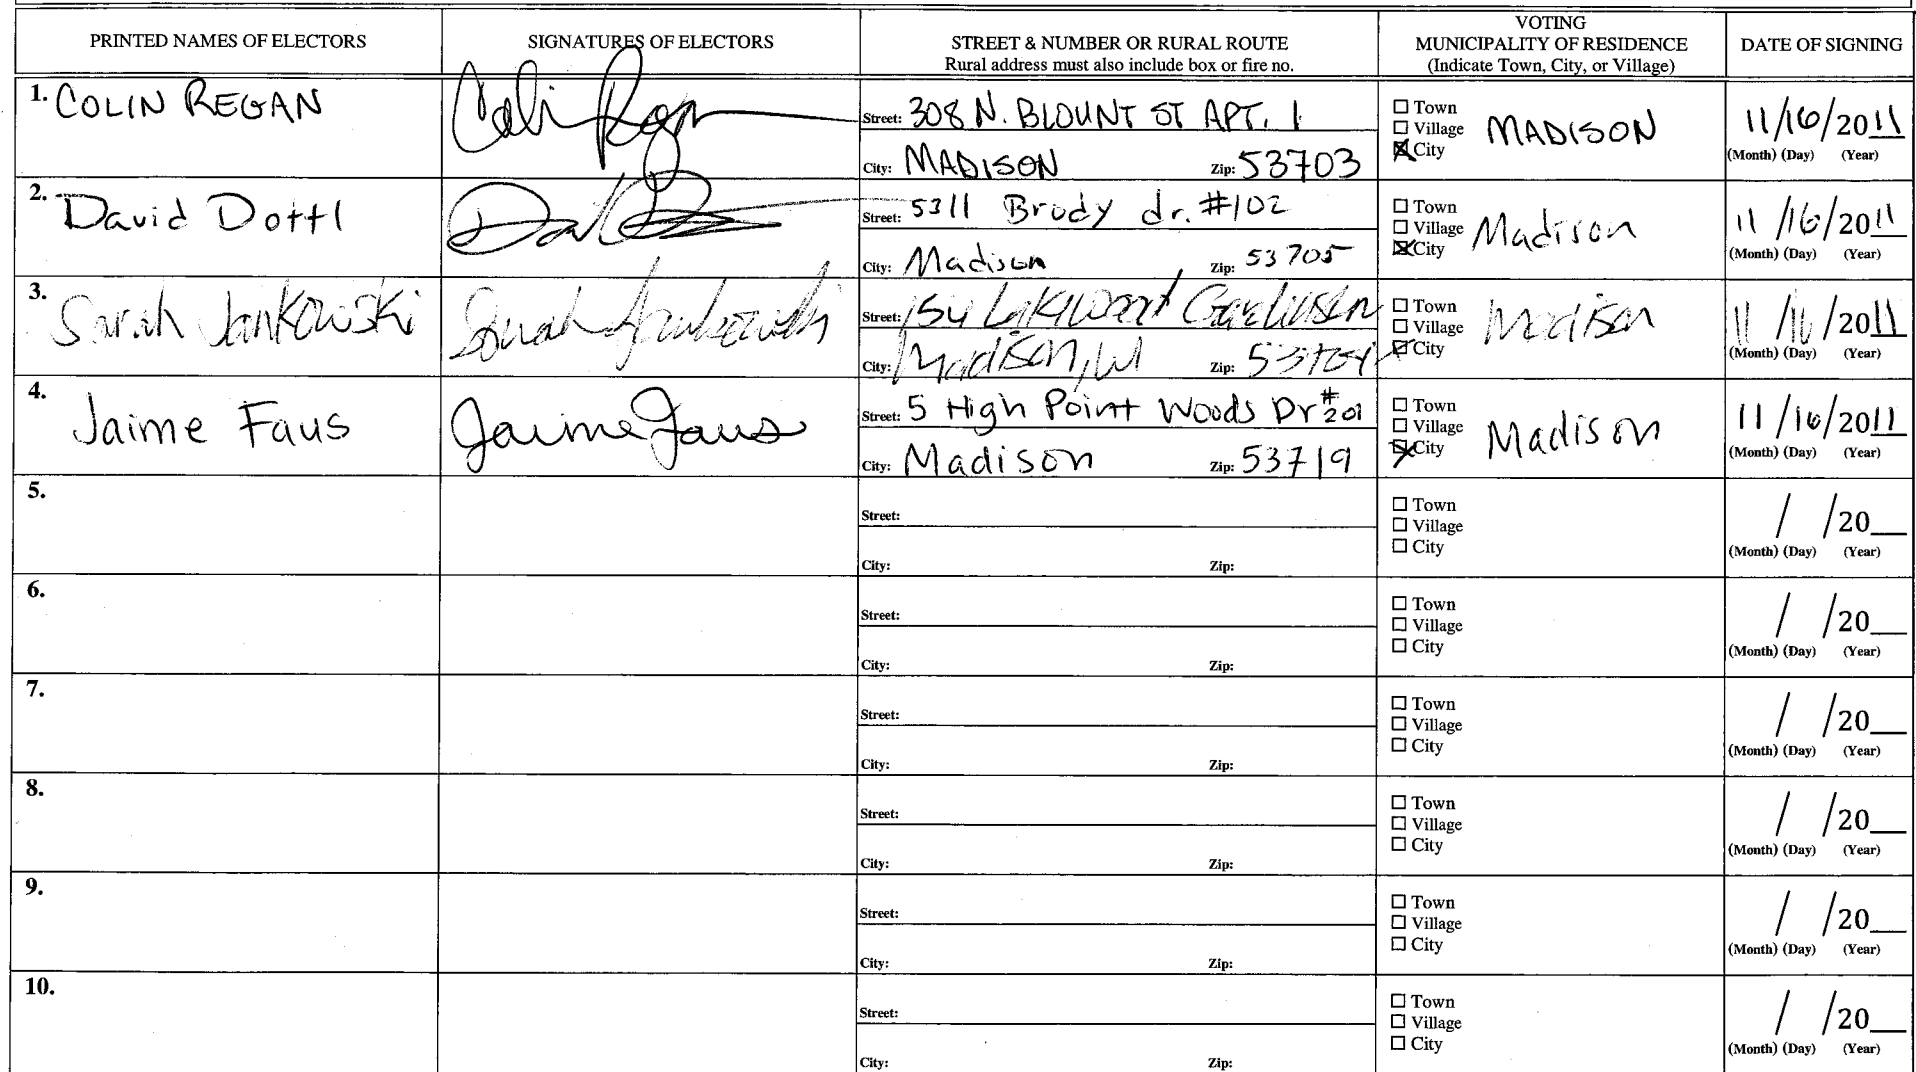 PRINTED NAMES OF ELECTORS
SIGNATURES OF ELECTORS
STREET & NUMBER OR RURAL ROUTE
Rural address must also include box or fire no.
VOTING
MUNICIPALITY OF RESIDENCE
(Indicate Town, City, or Village)
DATE OF SIGNING
1. COLIN REGAN
Colin Regan
Street: 308 N. BLOUNT ST APT. 1
City: MADISON Zip: 53703
Town
Village
City
MADISON
11/16/2011
(Month) (Day) (Year)
2. David Dottl
Street: 5311 Brody dr. #102
City: Madison Zip: 53705
Town
Village
City
Madison
11/16/2011
(Month) (Day) (Year)
3. Sarah Jankowski
Sarah Jankowski
Street: 154 Lakewood
City: Madison, WI Zip: 53704
Town
Village
City
Madison
11/16/2011
(Month) (Day) (Year)
4. Jaime Faus
Jaime Faus
Street: 5 High Point Woods Dr #201
City: Madison Zip: 53719
Town
Village
City
Madison
11/16/2011
(Month) (Day) (Year)
5.
Street:
City: Zip:
Town
Village
City
/ /20
(Month) (Day) (Year)
6.
Street:
City: Zip:
Town
Village
City
/ /20
(Month) (Day) (Year)
7.
Street:
City: Zip:
Town
Village
City
/ /20
(Month) (Day) (Year)
8.
Street:
City: Zip:
Town
Village
City
/ /20
(Month) (Day) (Year)
9.
Street:
City: Zip:
Town
Village
City
/ /20
(Month) (Day) (Year)
10.
Street:
City: Zip:
Town
Village
City
/ /20
(Month) (Day) (Year)